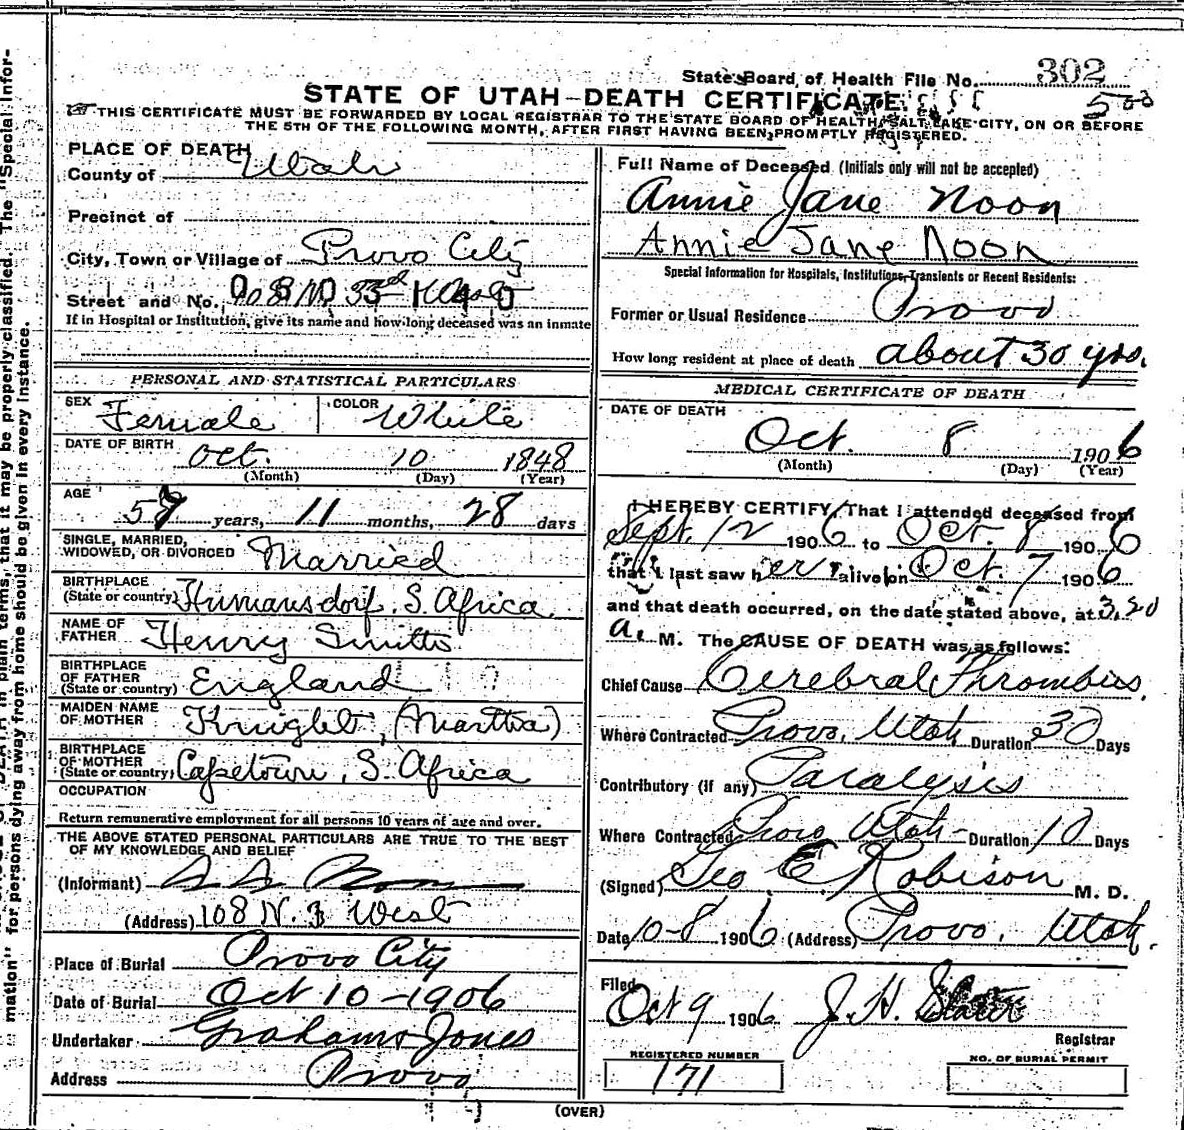 State Board of Health File No. 302
STATE OF UTAH—DEATH CERTIFICATE
500
THIS CERTIFICATE MUST BE FORWARDED BY LOCAL REGISTRAR TO THE STATE BOARD OF HEALTH, SALT LAKE CITY, ON OR BEFORE
THE 5TH OF THE FOLLOWING MONTH, AFTER FIRST HAVING BEEN PROMPTLY REGISTERED.
PLACE OF DEATH
County of Utah
Precinct of
City, Town or Village of Provo City
Street and No.
If in Hospital or Institution, give its name and how long deceased was an inmate
PERSONAL AND STATISTICAL PARTICULARS
SEX Female COLOR White
DATE OF BIRTH
Oct. 10 1848
(Month) (Day) (Year)
AGE
57 years, 11 months, 28 days
SINGLE, MARRIED,
WIDOWED, OR DIVORCED Married
BIRTHPLACE
(State or country) Humansdorf, S. Africa
NAME OF
FATHER Henry Smith
BIRTHPLACE
OF FATHER
(State or country) England
MAIDEN NAME
OF MOTHER Knight, (Martha)
BIRTHPLACE
OF MOTHER
(State or country) Capetown, S. Africa
OCCUPATION
Return remunerative employment for all persons 10 years of age and over.
THE ABOVE STATED PERSONAL PARTICULARS ARE TRUE TO THE BEST
OF MY KNOWLEDGE AND BELIEF
(Informant) A A Noon
(Address) 108 N. 3 West
Place of Burial Provo City
Date of Burial Oct 10-1906
Undertaker Graham Jones
Address Provo
Full Name of Deceased (Initials only will not be accepted)
Annie Jane Noon
Annie Jane Noon
Special Information for Hospitals, Institutions, Transients or Recent Residents:
Former or Usual Residence Provo
How long resident at place of death about 30 yrs.
MEDICAL CERTIFICATE OF DEATH
DATE OF DEATH
Oct. 8 1906
(Month) (Day) (Year)
I HEREBY CERTIFY, That I attended deceased from
Sept. 12 1906 to Oct. 8 1906
that I last saw her alive on Oct. 7 1906
and that death occurred, on the date stated above, at 3.20
a. M. The CAUSE OF DEATH was as follows:
Chief Cause Cerebral Thrombus,
Where Contracted Provo, Utah Duration 30 Days
Contributory (if any) Paralysis
Where Contracted Provo Utah- Duration 10 Days
(Signed) Geo E Robison M. D.
Date 10-8 1906 (Address) Provo, Utah.
Filed
Oct 9 1906 J. H. Slater
Registrar
REGISTERED NUMBER
171
NO. OF BURIAL PERMIT
(OVER)
mation" for persons dying away from home should be given in every instance.